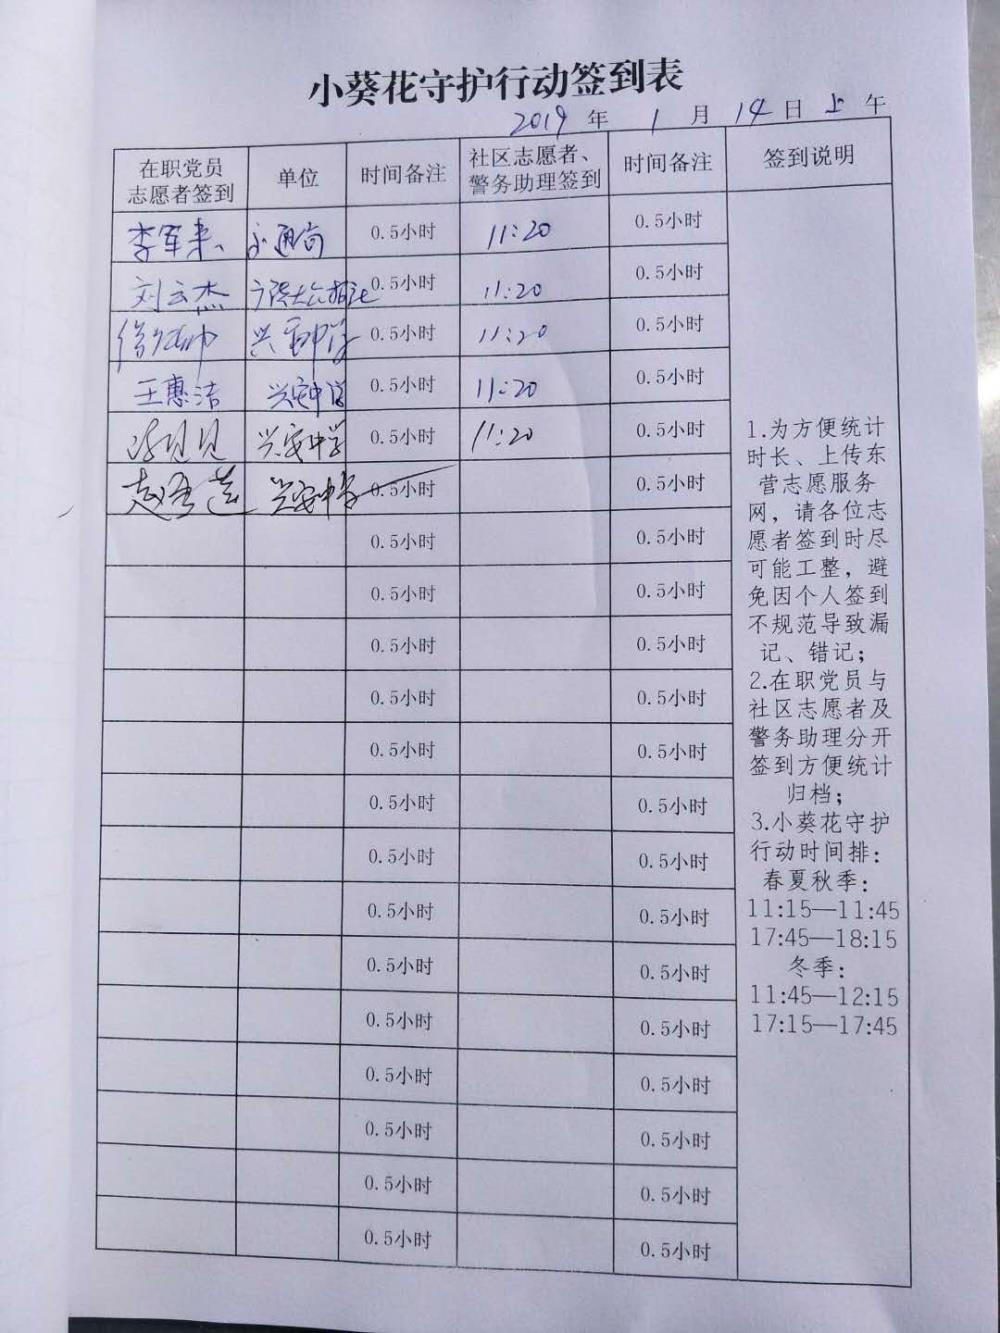 小葵花守护行动签到表
2019 年 1 月 14 日 上 午
在职党员
志愿者签到
单位
时间备注
社区志愿者、
警务助理签到
时间备注
签到说明
李军来、 0.5小时 11:20 0.5小时
刘云杰 0.5小时 11:20 0.5小时
兴安中学 0.5小时 11:20 0.5小时
王惠洁 兴安中学 0.5小时 11:20 0.5小时
兴安中学 0.5小时 11:20 0.5小时
兴安中学 0.5小时 0.5小时
0.5小时 0.5小时
0.5小时 0.5小时
0.5小时 0.5小时
0.5小时 0.5小时
0.5小时 0.5小时
0.5小时 0.5小时
0.5小时 0.5小时
0.5小时 0.5小时
0.5小时 0.5小时
0.5小时 0.5小时
0.5小时 0.5小时
0.5小时 0.5小时
0.5小时 0.5小时
0.5小时 0.5小时
1.为方便统计
时长、上传东
营志愿服务
网，请各位志
愿者签到时尽
可能工整，避
免因个人签到
不规范导致漏
记、错记；
2.在职党员与
社区志愿者及
警务助理分开
签到方便统计
归档；
3.小葵花守护
行动时间排：
春夏秋季：
11:15—11:45
17:45—18:15
冬季：
11:45—12:15
17:15—17:45